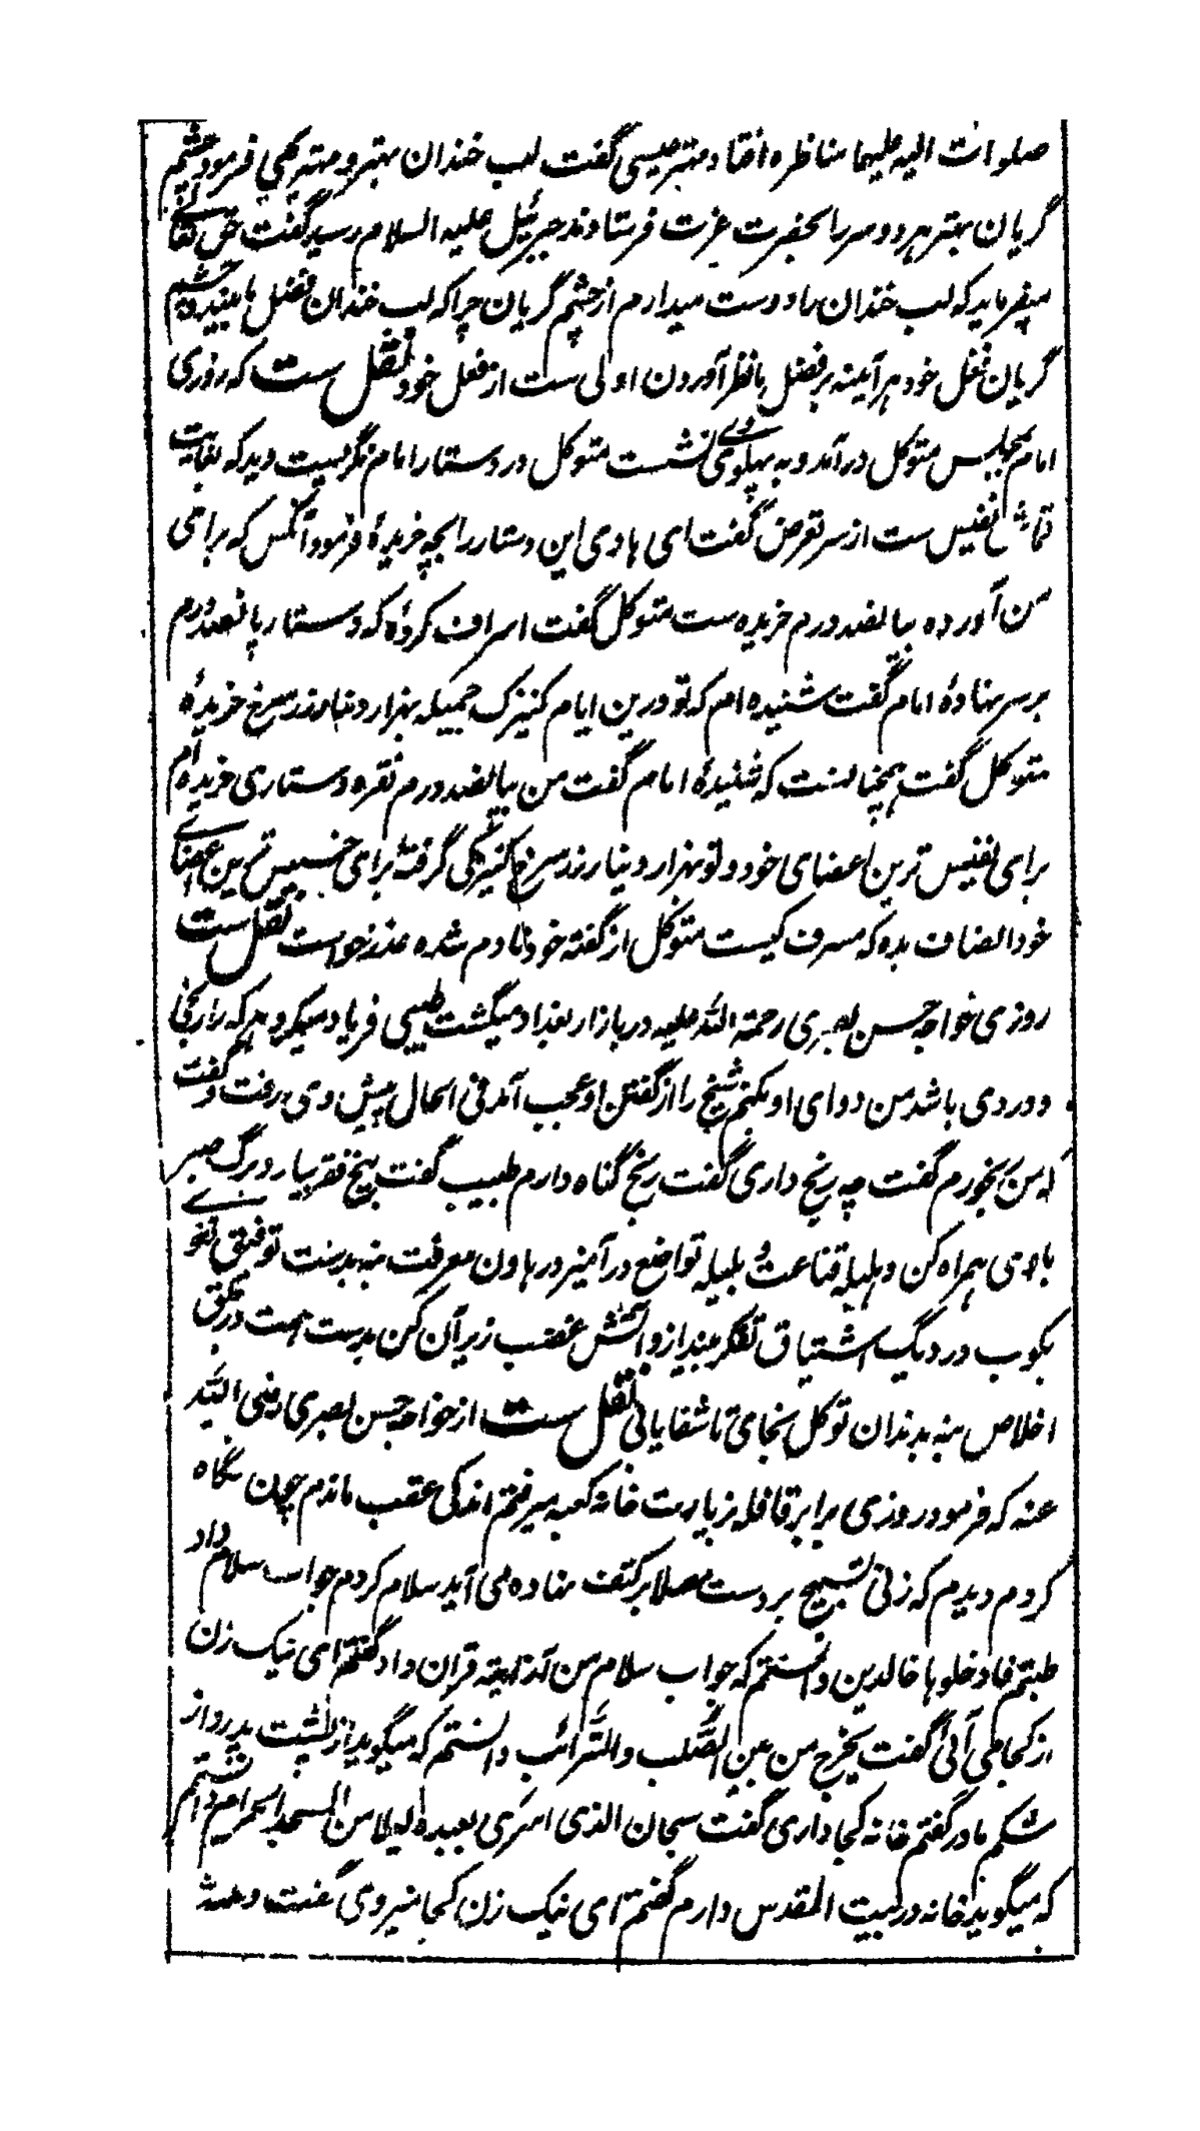 صلوات الله علیهما مناظره افتاد مهتر عیسی گفت لب خندان بهتر و مهتر یحیی فرمود چشم
گریان بهتر هر دو سر را بحضرت عزت فرستادند جبرئیل علیه السلام رسید گفت حق تعالی
میفرماید که لب خندان را دوست میدارم از چشم گریان چرا که لب خندان فضل ما بیند و چشم
گریان فعل خود هر آئینه بر فضل ما نظر آوردن اولی ست از فعل خود نقل ست که روزی
امام بمجلس متوکل در آمد و به پهلوی وی نشست متوکل در دستار امام نگریست دید که بغایت
قماش نفیس ست از سر تعرض گفت ای هادی این دستار را بچه خریدهٔ فرمود آنکس که برای
من آورده بپانصد درم خریده ست متوکل گفت اسراف کردهٔ که دستار پانصد درم
بر سر نهادهٔ امام گفت شنیده ام که تو درین ایام کنیزک جمیله بهزار دینار زر سرخ خریدهٔ
متوکل گفت همچنانست که شنیدهٔ امام گفت من بپانصد درم نقره دستاری خریده ام
برای نفیس ترین اعضای خود و تو بهزار دینار زر سرخ کنیزکی گرفتهٔ برای خسیس ترین اعضای
خود انصاف بده که مسرف کیست متوکل از گفته خود نادم شده عذر خواست نقل ست
روزی خواجه حسن بصری رحمة الله علیه در بازار بغداد میگشت طبیبی فریاد میکرد هر که را رنجی
و دردی باشد من دوای او بکنم شیخ را از گفتن او عجب آمد فی الحال پیش وی رفت و گفت
که من رنجورم گفت چه رنج داری گفت رنج گناه دارم طبیب گفت بیخ فقر بیار و برگ صبر
با وی همراه کن و هلیله قناعت و بلیله تواضع در آمیز در هاون معرفت بنه بدست توفیق نفی
بکوب در دیگ اشتیاق تفکر بینداز و آتش غضب زیر آن کن بدست همت در
اخلاص بنه بدندان توکل بخای تا شفا یابی نقل ست از خواجه حسن بصری رضی الله
عنه که فرمود روزی برابر قافله بزیارت خانه کعبه میرفتم اندکی عقب ماندم چون نگاه
کردم دیدم که زنی تسبیح بر دست مصلا بر کتف نهاده می آید سلام کردم جواب سلام داد
طبتم فادخلوها خالدین دانستم که جواب سلام من از آیته قرآن داد گفتم ای نیک زن
از کجا می آئی گفت یخرج من بین الصُّلب والتَّرائب دانستم که میگوید از پشت پدر و از
شکم مادر گفتم خانه کجا داری گفت سبحان الذی اسری بعبده لیلا من المسجد الحرام دانستم
که میگوید خانه در بیت المقدس دارم گفتم ای نیک زن کجا میروی گفت و لله